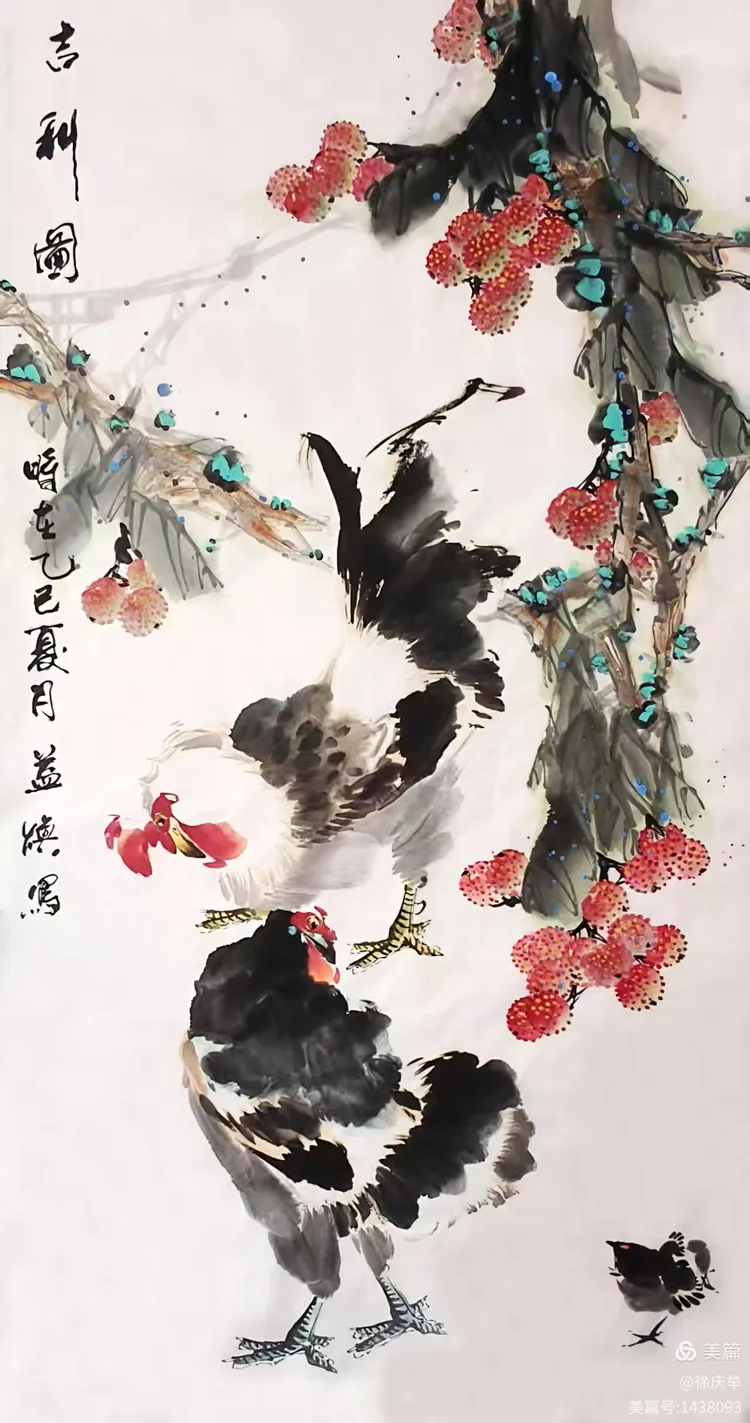 吉利圖
時在乙巳夏月 益 寫
美篇
@徐庆举
美篇号:1438093